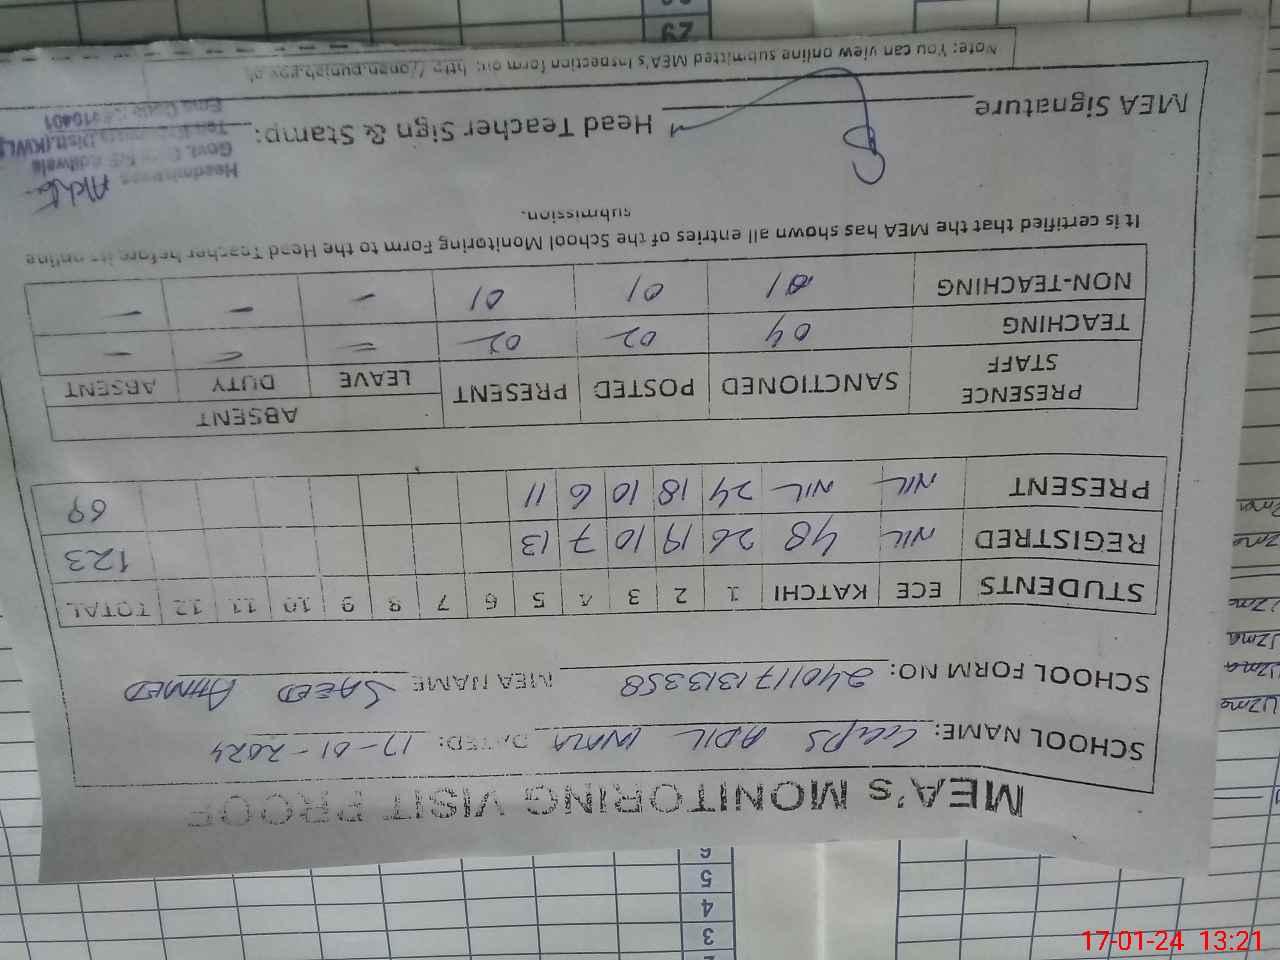 MEA's MONITORING VISIT PROOF
SCHOOL NAME: GGPS ADIL WALA DATED: 17-01-2024
SCHOOL FORM NO: 2401171313358 MEA NAME SAEED AHMED
STUDENTS ECE KATCHI 1 2 3 4 5 6 7 8 9 10 11 12 TOTAL
REGISTRED NIL 48 26 19 10 7 13 123
PRESENT NIL NIL 24 18 10 6 11 69
PRESENCE STAFF SANCTIONED POSTED PRESENT ABSENT
LEAVE DUTY ABSENT
TEACHING 04 02 02 = = -
NON-TEACHING 01 01 01 - - -
It is certified that the MEA has shown all entries of the School Monitoring Form to the Head Teacher before its online
submission.
Headmistress
Govt.
MEA Signature Head Teacher Sign & Stamp:
Note: You can view online submitted MEA's Inspection form on: http://open.punjab.gov.pk
29
6
5
4
3
Uzma
Uzma
Uzma
Uzma
Uzma
17-01-24 13:21